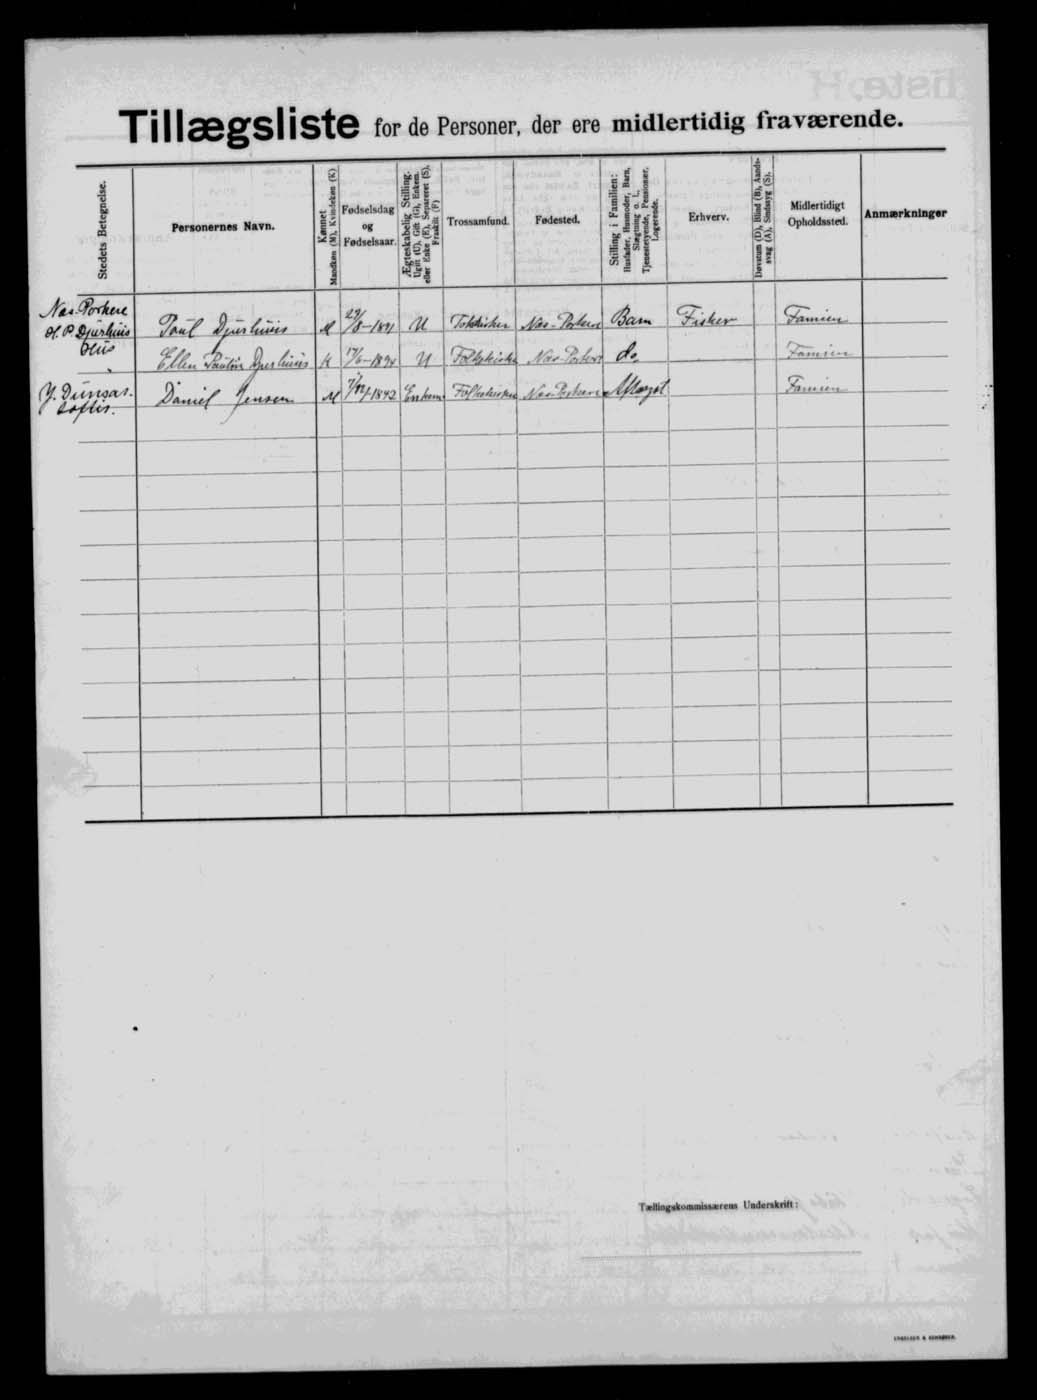 Tillægsliste for de Personer, der ere midlertidig fraværende.
Stedets Betegnelse.
Personernes Navn.
Kønnet
Mandkøn (M), Kvindekøn (K)
Fødselsdag
og
Fødselsaar.
Ægteskabelig Stilling.
Ugift (U), Gift (G), Enkem.
eller Enke (E), Separeret (S),
Fraskilt (F)
Trossamfund.
Fødested.
Stilling i Familien:
Husfader, Husmoder, Barn,
Slægtning o. l.,
Tjenestetyende, Pensionær,
Logerende.
Erhverv.
Døvstum (D), Blind (B), Aands-
svag (A), Sindssyg (S).
Midlertidigt
Opholdssted.
Anmærkninger
Næs-Porkere
H. P. Djurhuus
Hus
Poul Djurhuus M 29/8-1891 U Folkekirken Næs-Porkere Barn Fisker Famien
" Ellen Djurhuus K 17/6-1894 U Folkekirken Næs-Porkere do Famien
Y. Dungas-
toftir.
Daniel Jensen M 1842 Enkem Folkekirken Næs-Porkere Aftægt Famien
Tællingskommissærens Underskrift: